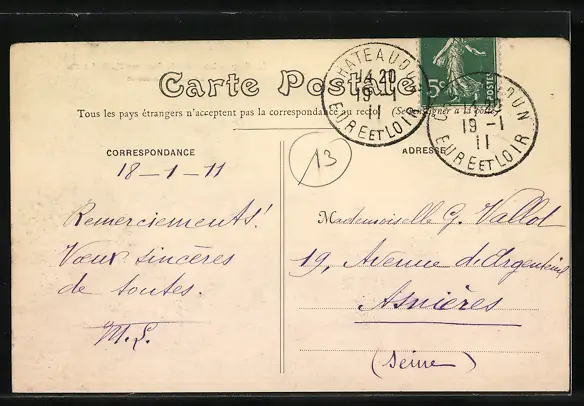 Carte Postale
Tous les pays étrangers n'acceptent pas la correspondance au recto (Se renseigner à la poste)
CHATEAUDUN
14 20
19 - 1
11
EURE ET LOIR
5c
POSTES
CHATEAUDUN
14 20
19 - 1
11
EURE ET LOIR
13
CORRESPONDANCE
18 - 1 - 11
Remerciements!
Vœux sincères
de toutes.
M. L.
ADRESSE
Mademoiselle G. Vallot
19, Avenue d'Argenteuil
Asnières
(Seine)